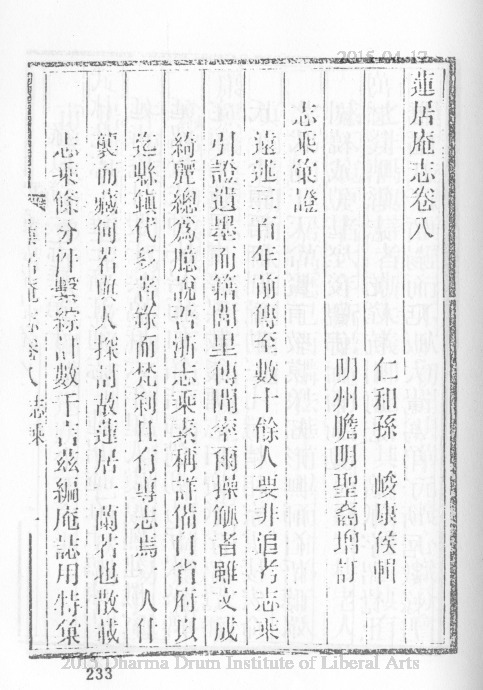 2015-04-17
蓮居庵志卷八
仁和孫 峻康侯輯
明州瞻明聖裔增訂
志乘彙證
遠述三百年前傳至數十餘人要非追考志乘
引證遺墨而籍閭里傳聞率爾操觚者雖文成
綺麗總爲臆說吾浙志乘素稱詳備自省府以
迄縣鎭代多著錄而梵刹且有專志焉一人什
襲而藏何若與人探討故蓮居一蘭若也散載
志乘條分件繫綜計數千言茲編庵誌用特彙
蓮居庵志卷八 志乘 一
2015 Dharma Drum Institute of Liberal Arts
233